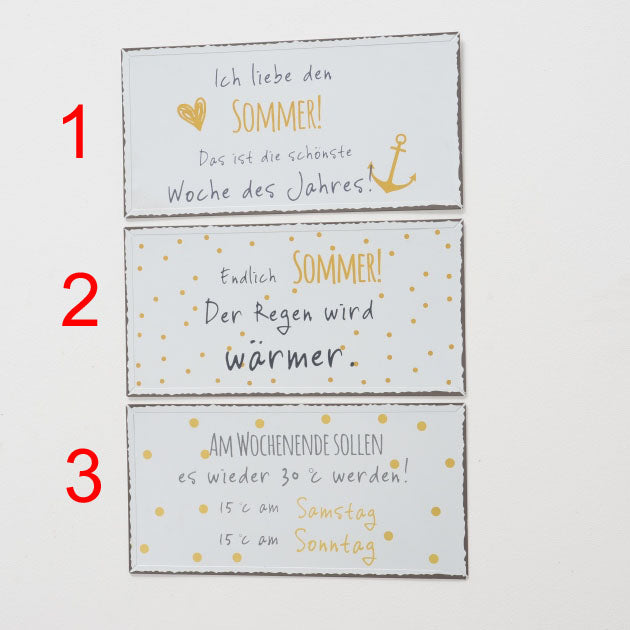 1
Ich liebe den
SOMMER!
Das ist die schönste
Woche des Jahres!
2
Endlich SOMMER!
Der Regen wird
wärmer.
3
AM WOCHENENDE SOLLEN
es wieder 30 °C werden!
15 °C am Samstag
15 °C am Sonntag